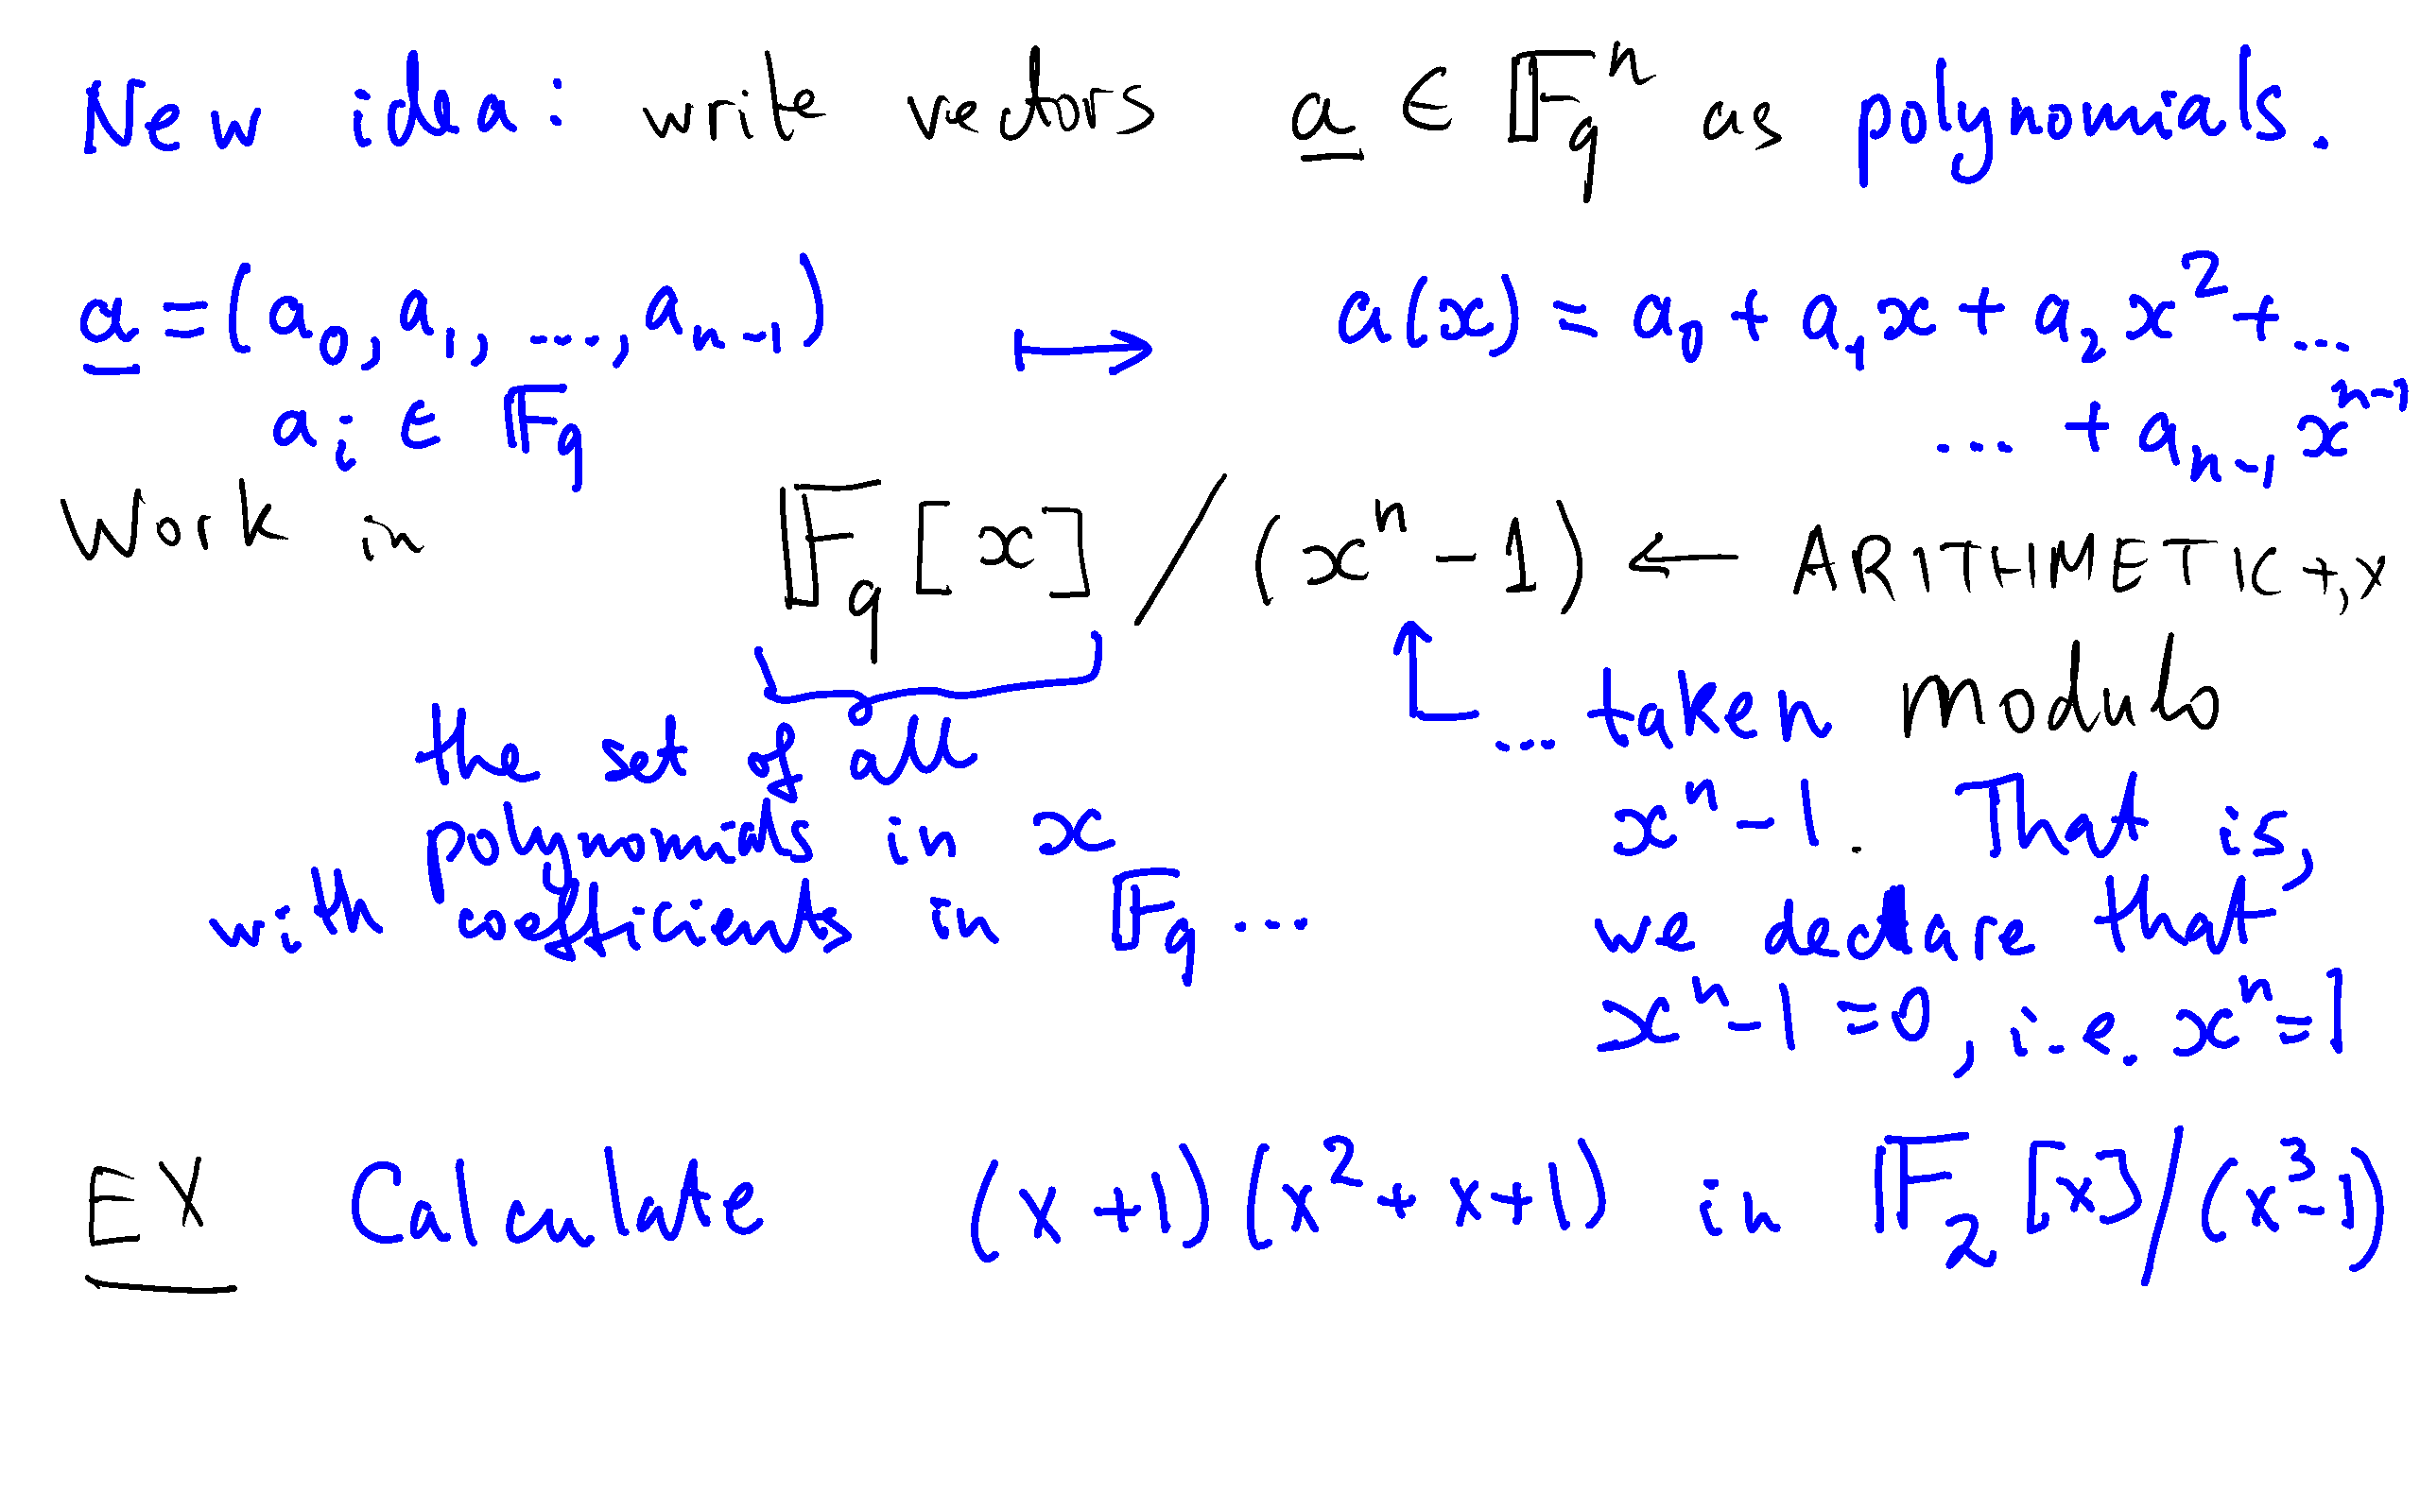 New idea: write vectors a ∈ 𝔽_q^n as polynomials.
a = (a_0, a_1, ..., a_{n-1}) ↦ a(x) = a_0 + a_1 x + a_2 x^2 + ...
a_i ∈ 𝔽_q ... + a_{n-1} x^{n-1}
Work in 𝔽_q [x] / (x^n - 1) ← ARITHMETIC +, ×
the set of all
polynomials in x
with coefficients in 𝔽_q ...
... taken modulo
x^n - 1. That is,
we declare that
x^n - 1 = 0, i.e. x^n = 1
EX Calculate (x + 1)(x^2 + x + 1) in 𝔽_2 [x]/(x^3 - 1)